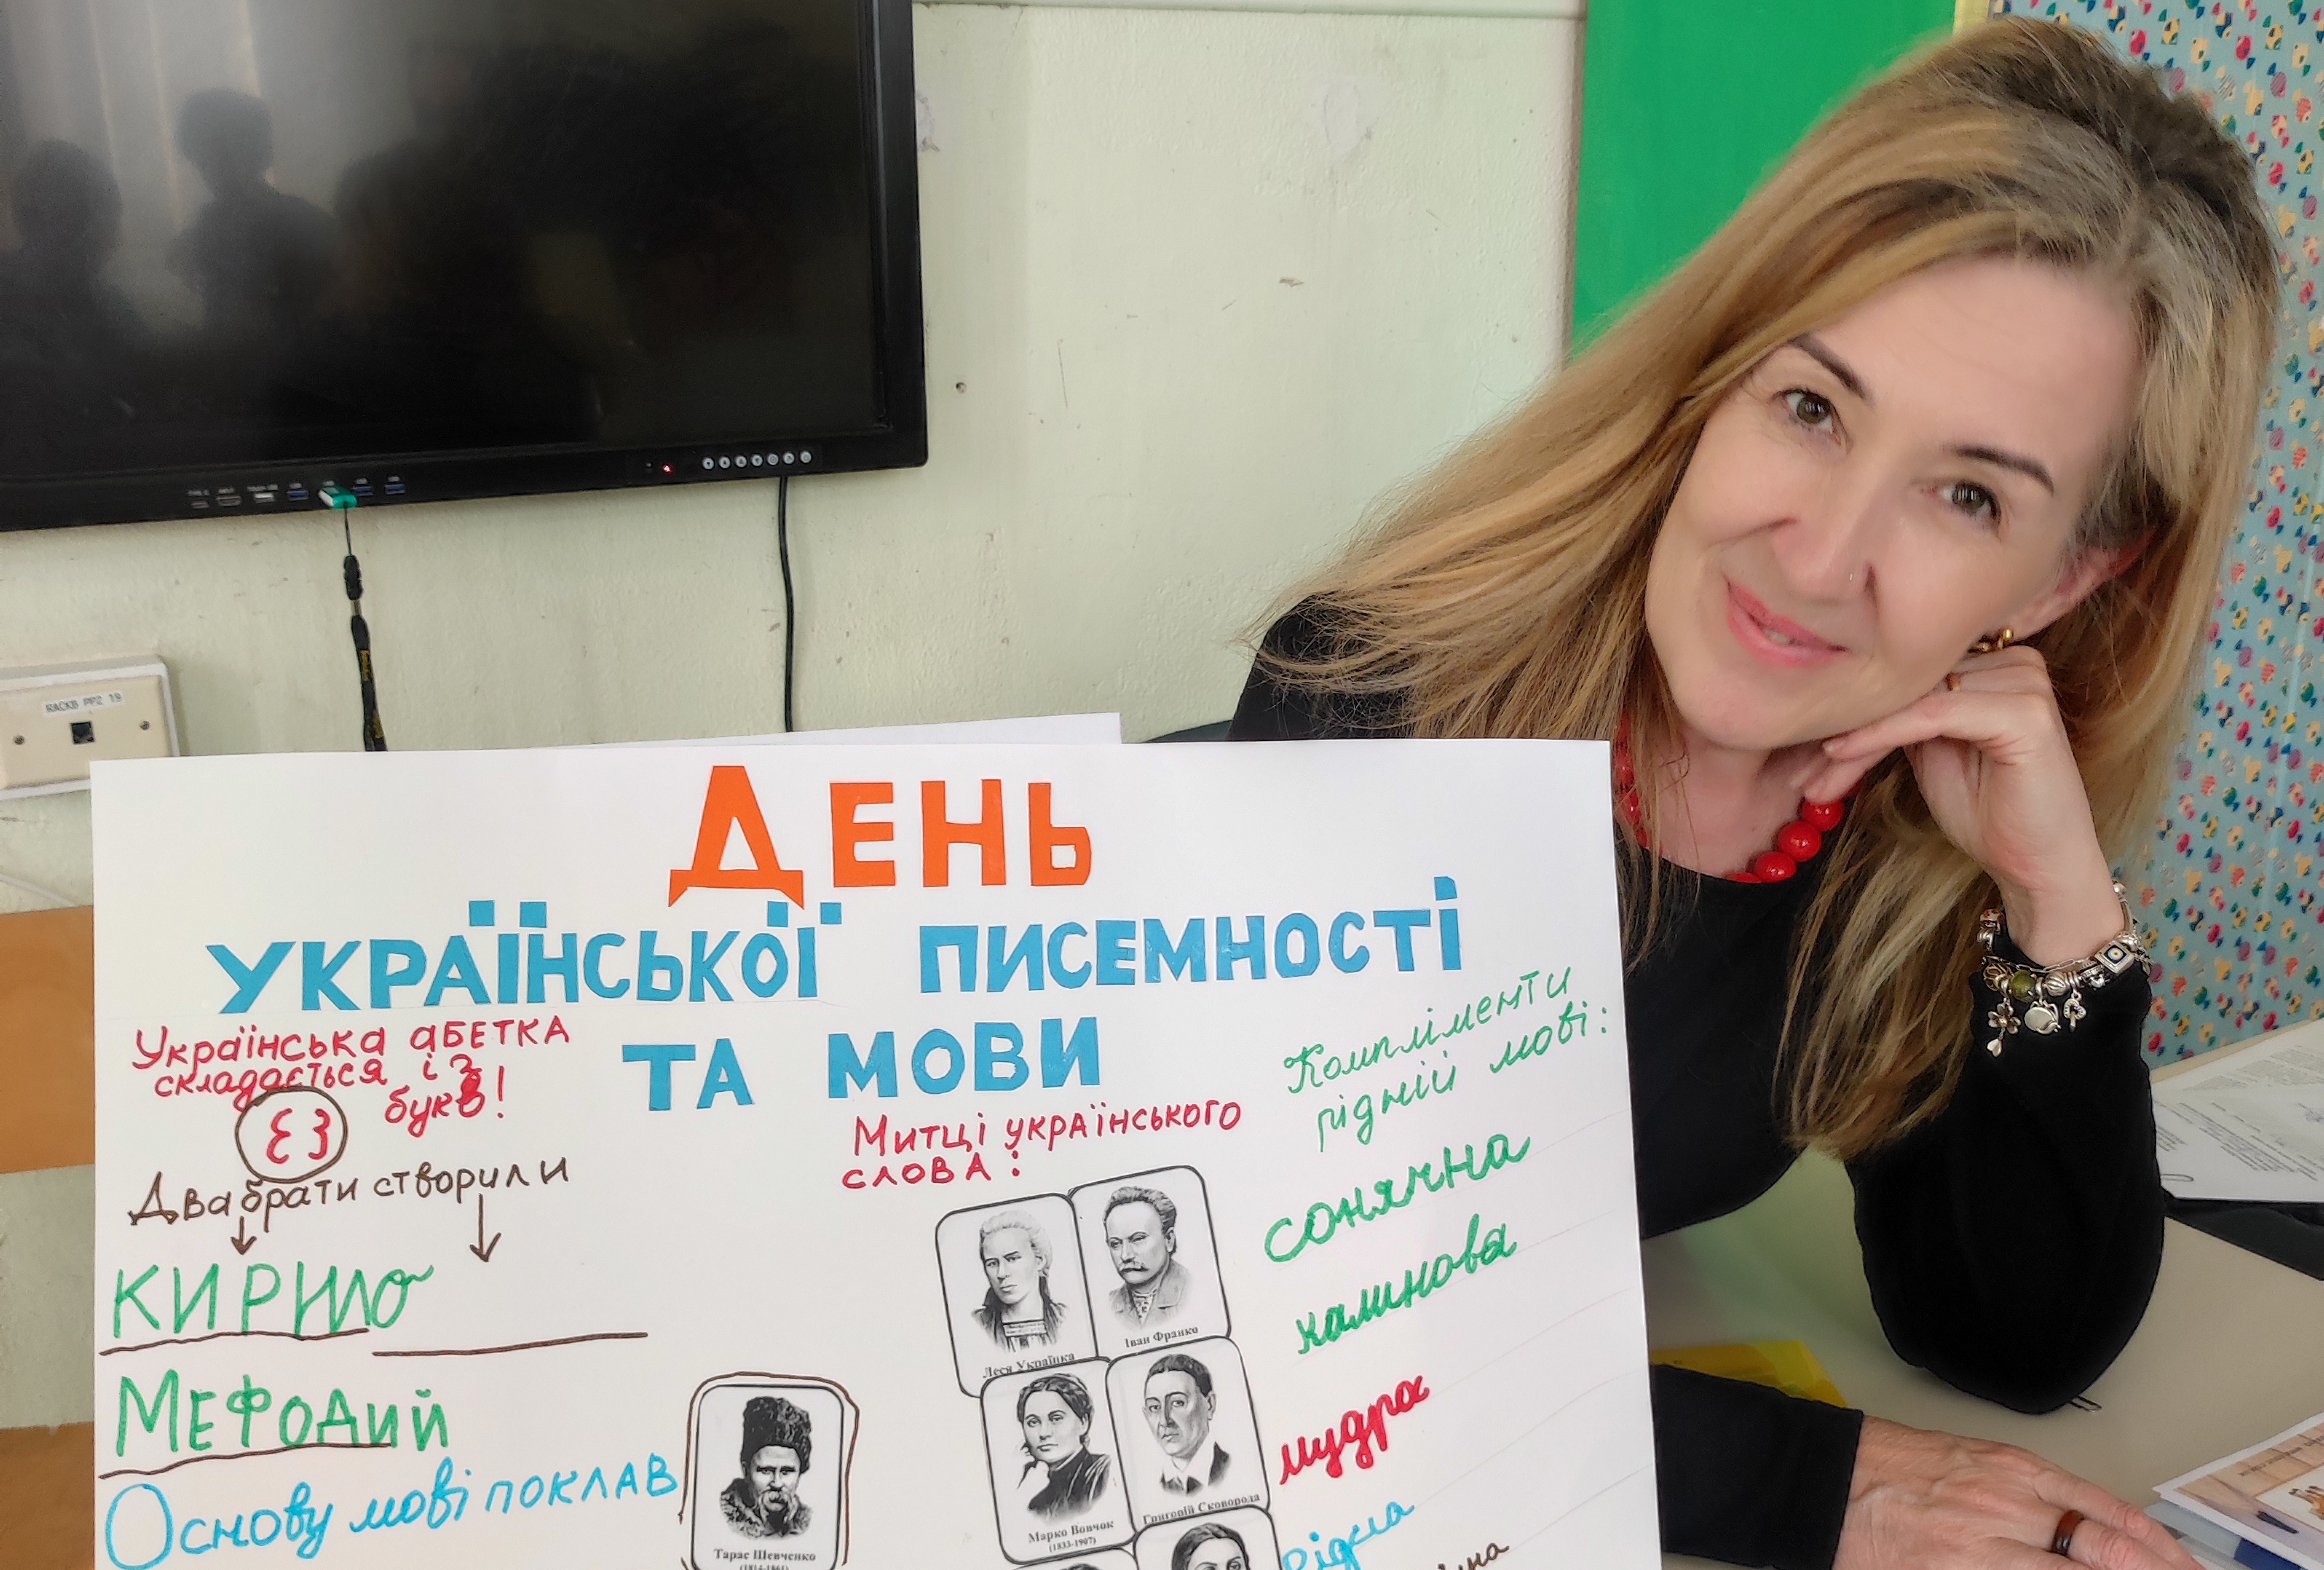 RACKB PP2 19
ДЕНЬ
УКРАЇНСЬКОЇ ПИСЕМНОСТІ
ТА МОВИ
Українська абЕТКА
складається із
букв!
33
Два брати створили
КИРИЛО
МЕФОДИЙ
Основу мові поклав
Тарас Шевченко
(1814-1861)
Митці українського
слова:
Леся Українка
Іван Франко
Марко Вовчок
(1833-1907)
Григорій Сковорода
Компліменти
рідній мові:
сонячна
калинова
мудра
рідна